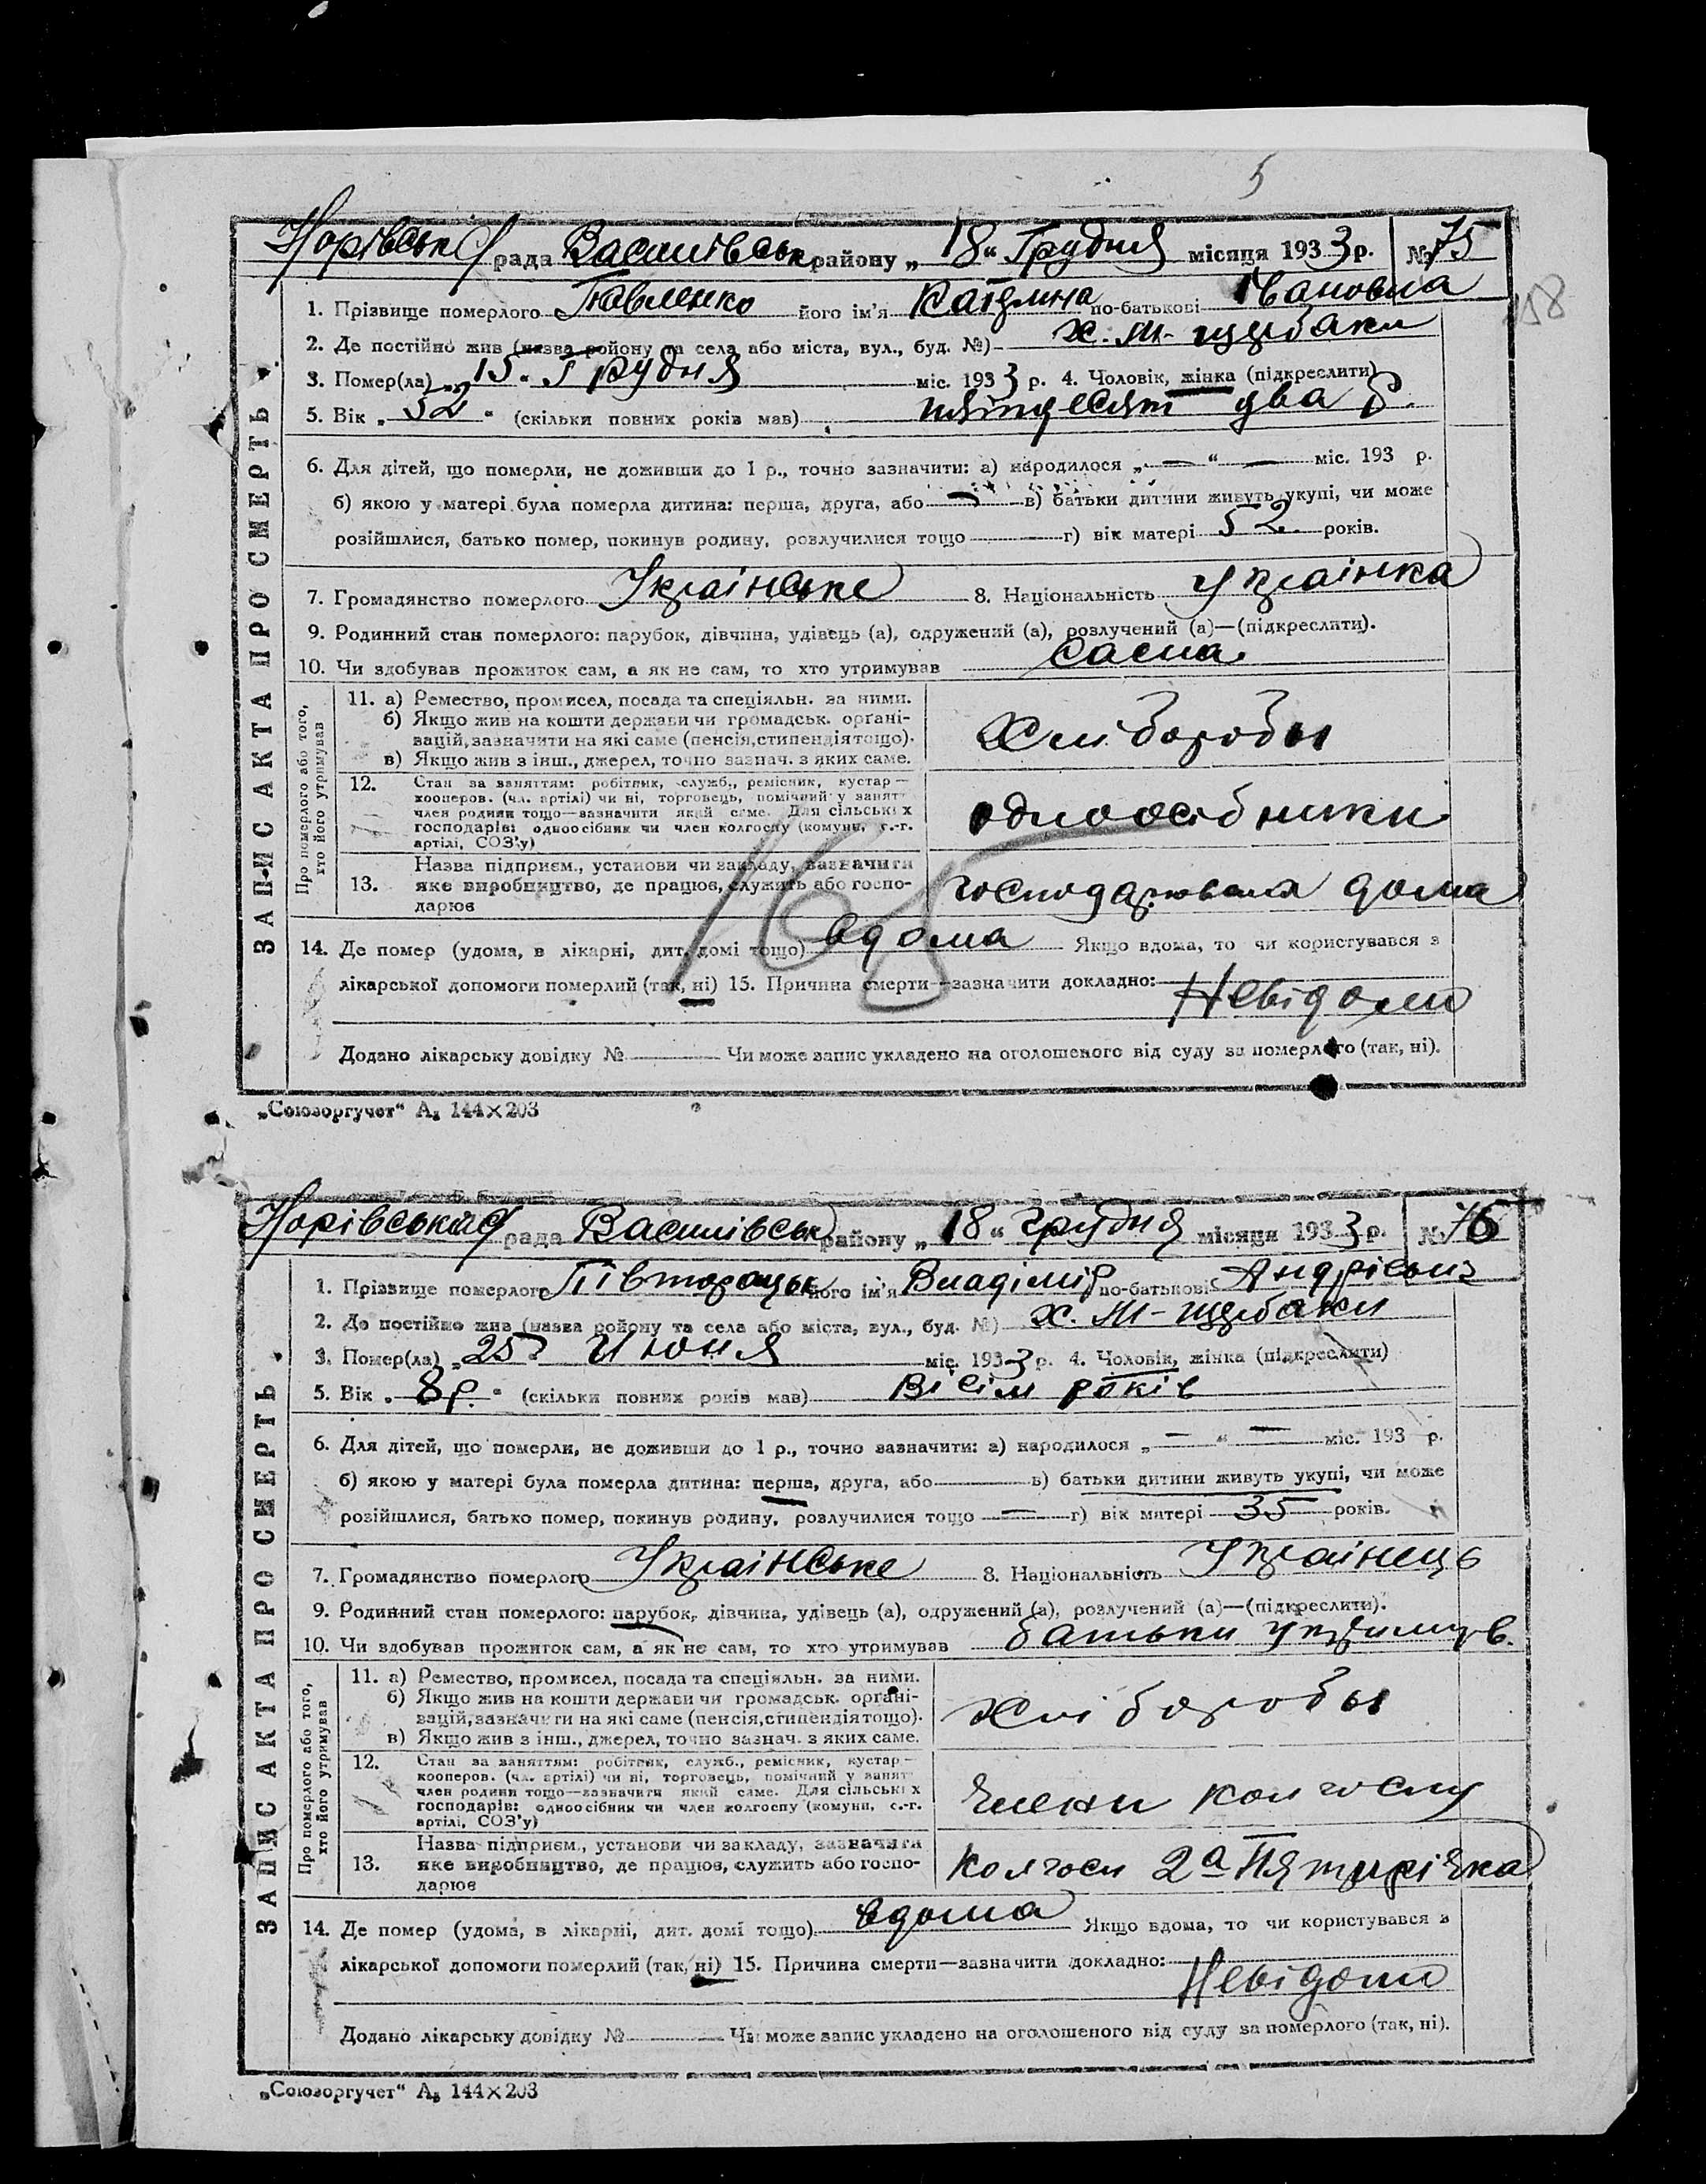 5
Норівська рада Василівськ району „ 18 “ Грудня місяця 1933 р. № 75
158
1. Прізвище померлого Павленко його ім'я Катерина по-батькові Івановна
2. Де постійно жив (назва району та села або міста, вул., буд. №) х. М-щербаки
3. Помер(ла) „ 15 “ Грудня міс. 1933 р. 4. Чоловік, жінка (підкреслити)
5. Вік „ 52 “ (скільки повних років мав) пятдесят два р.
6. Для дітей, що померли, не доживши до 1 р., точно зазначити: а) народилося „ — “ — міс. 193 р.
б) якою у матері була померла дитина: перша, друга, або — в) батьки дитини живуть укупі, чи може
розійшлися, батько помер, покинув родину, розлучилися тощо г) вік матері 52 років.
7. Громадянство померлого Українське 8. Національність Українка
9. Родинний стан померлого: парубок, дівчина, удівець (а), одружений (а), розлучений (а)—(підкреслити).
10. Чи здобував прожиток сам, а як не сам, то хто утримував Сама
ЗАПИС АКТА ПРО СМЕРТЬ
Про померлого або того, хто його утримував
11. а) Ремество, промисел, посада та спеціяльн. за ними.
б) Якщо жив на кошти держави чи громадськ. орґані-
зацій, зазначити на які саме (пенсія, стипендія тощо).
в) Якщо жив з інш., джерел, точно зазнач. з яких саме.
Хлібороби
12. Стан за заняттям: робітник, служб., ремісник, кустар—
кооперов. (чл. артілі) чи ні, торговець, помічний у занятт
член родини тощо—зазначити який саме. Для сільських
господарів: одноосібник чи член колгоспу (комуни, с.-г.
артілі, СОЗ'у)
одноосібники
13. Назва підприєм., установи чи закладу, зазначити
яке виробництво, де працює, служить або госпо-
дарює
господарювала дома
168
14. Де помер (удома, в лікарні, дит. домі тощо) вдома Якщо вдома, то чи користувався з
лікарської допомоги померлий (так, ні) 15. Причина смерти—зазначити докладно:
Невідомо
Додано лікарську довідку № Чи може запис укладено на оголошеного від суду за померлого (так, ні).
„Союзоргучет“ А₅ 144×203
Норівська рада Василівськ району „ 18 “ грудня місяця 1933 р. № 76
1. Прізвище померлого Півторацьк його ім'я Владімір по-батькові
2. Де постійно жив (назва району та села або міста, вул., буд. №) х. М-щербаки
3. Помер(ла) „ 25 “ Июня міс. 1933 р. 4. Чоловік, жінка (підкреслити)
5. Вік „ 8 р. “ (скільки повних років мав) Вісім років
6. Для дітей, що померли, не доживши до 1 р., точно зазначити: а) народилося „ — “ — міс. 193 р.
б) якою у матері була померла дитина: перша, друга, або в) батьки дитини живуть укупі, чи може
розійшлися, батько помер, покинув родину, розлучилися тощо — г) вік матері 35 років.
7. Громадянство померлого Українське 8. Національність Українець
9. Родинний стан померлого: парубок, дівчина, удівець (а), одружений (а), розлучений (а)—(підкреслити).
10. Чи здобував прожиток сам, а як не сам, то хто утримував батьки
ЗАПИС АКТА ПРО СМЕРТЬ
Про померлого або того, хто його утримував
11. а) Ремество, промисел, посада та спеціяльн. за ними.
б) Якщо жив на кошти держави чи громадськ. орґані-
зацій, зазначити на які саме (пенсія, стипендія тощо).
в) Якщо жив з інш., джерел, точно зазнач. з яких саме.
Хлібороби
12. Стан за заняттям: робітник, служб., ремісник, кустар—
кооперов. (чл. артілі) чи ні, торговець, помічний у занятт
член родини тощо—зазначити який саме. Для сільських
господарів: одноосібник чи член колгоспу (комуни, с.-г.
артілі, СОЗ'у)
Члени колгоспу
13. Назва підприєм., установи чи закладу, зазначити
яке виробництво, де працює, служить або госпо-
дарює
Колгосп 2а Пятирічка
14. Де помер (удома, в лікарні, дит. домі тощо) вдома Якщо вдома, то чи користувався з
лікарської допомоги померлий (так, ні) 15. Причина смерти—зазначити докладно:
Невідомо
Додано лікарську довідку № Чи може запис укладено на оголошеного від суду за померлого (так, ні).
„Союзоргучет“ А₅ 144×203